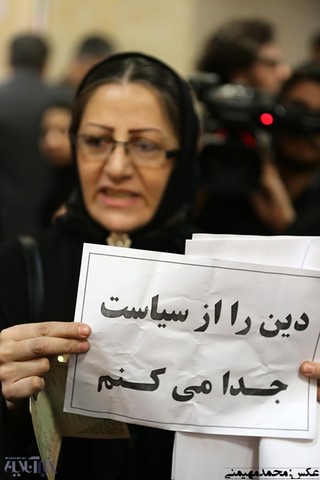 دین را از سیاست
جدا می کنم
عکس:محمدمهیمنی